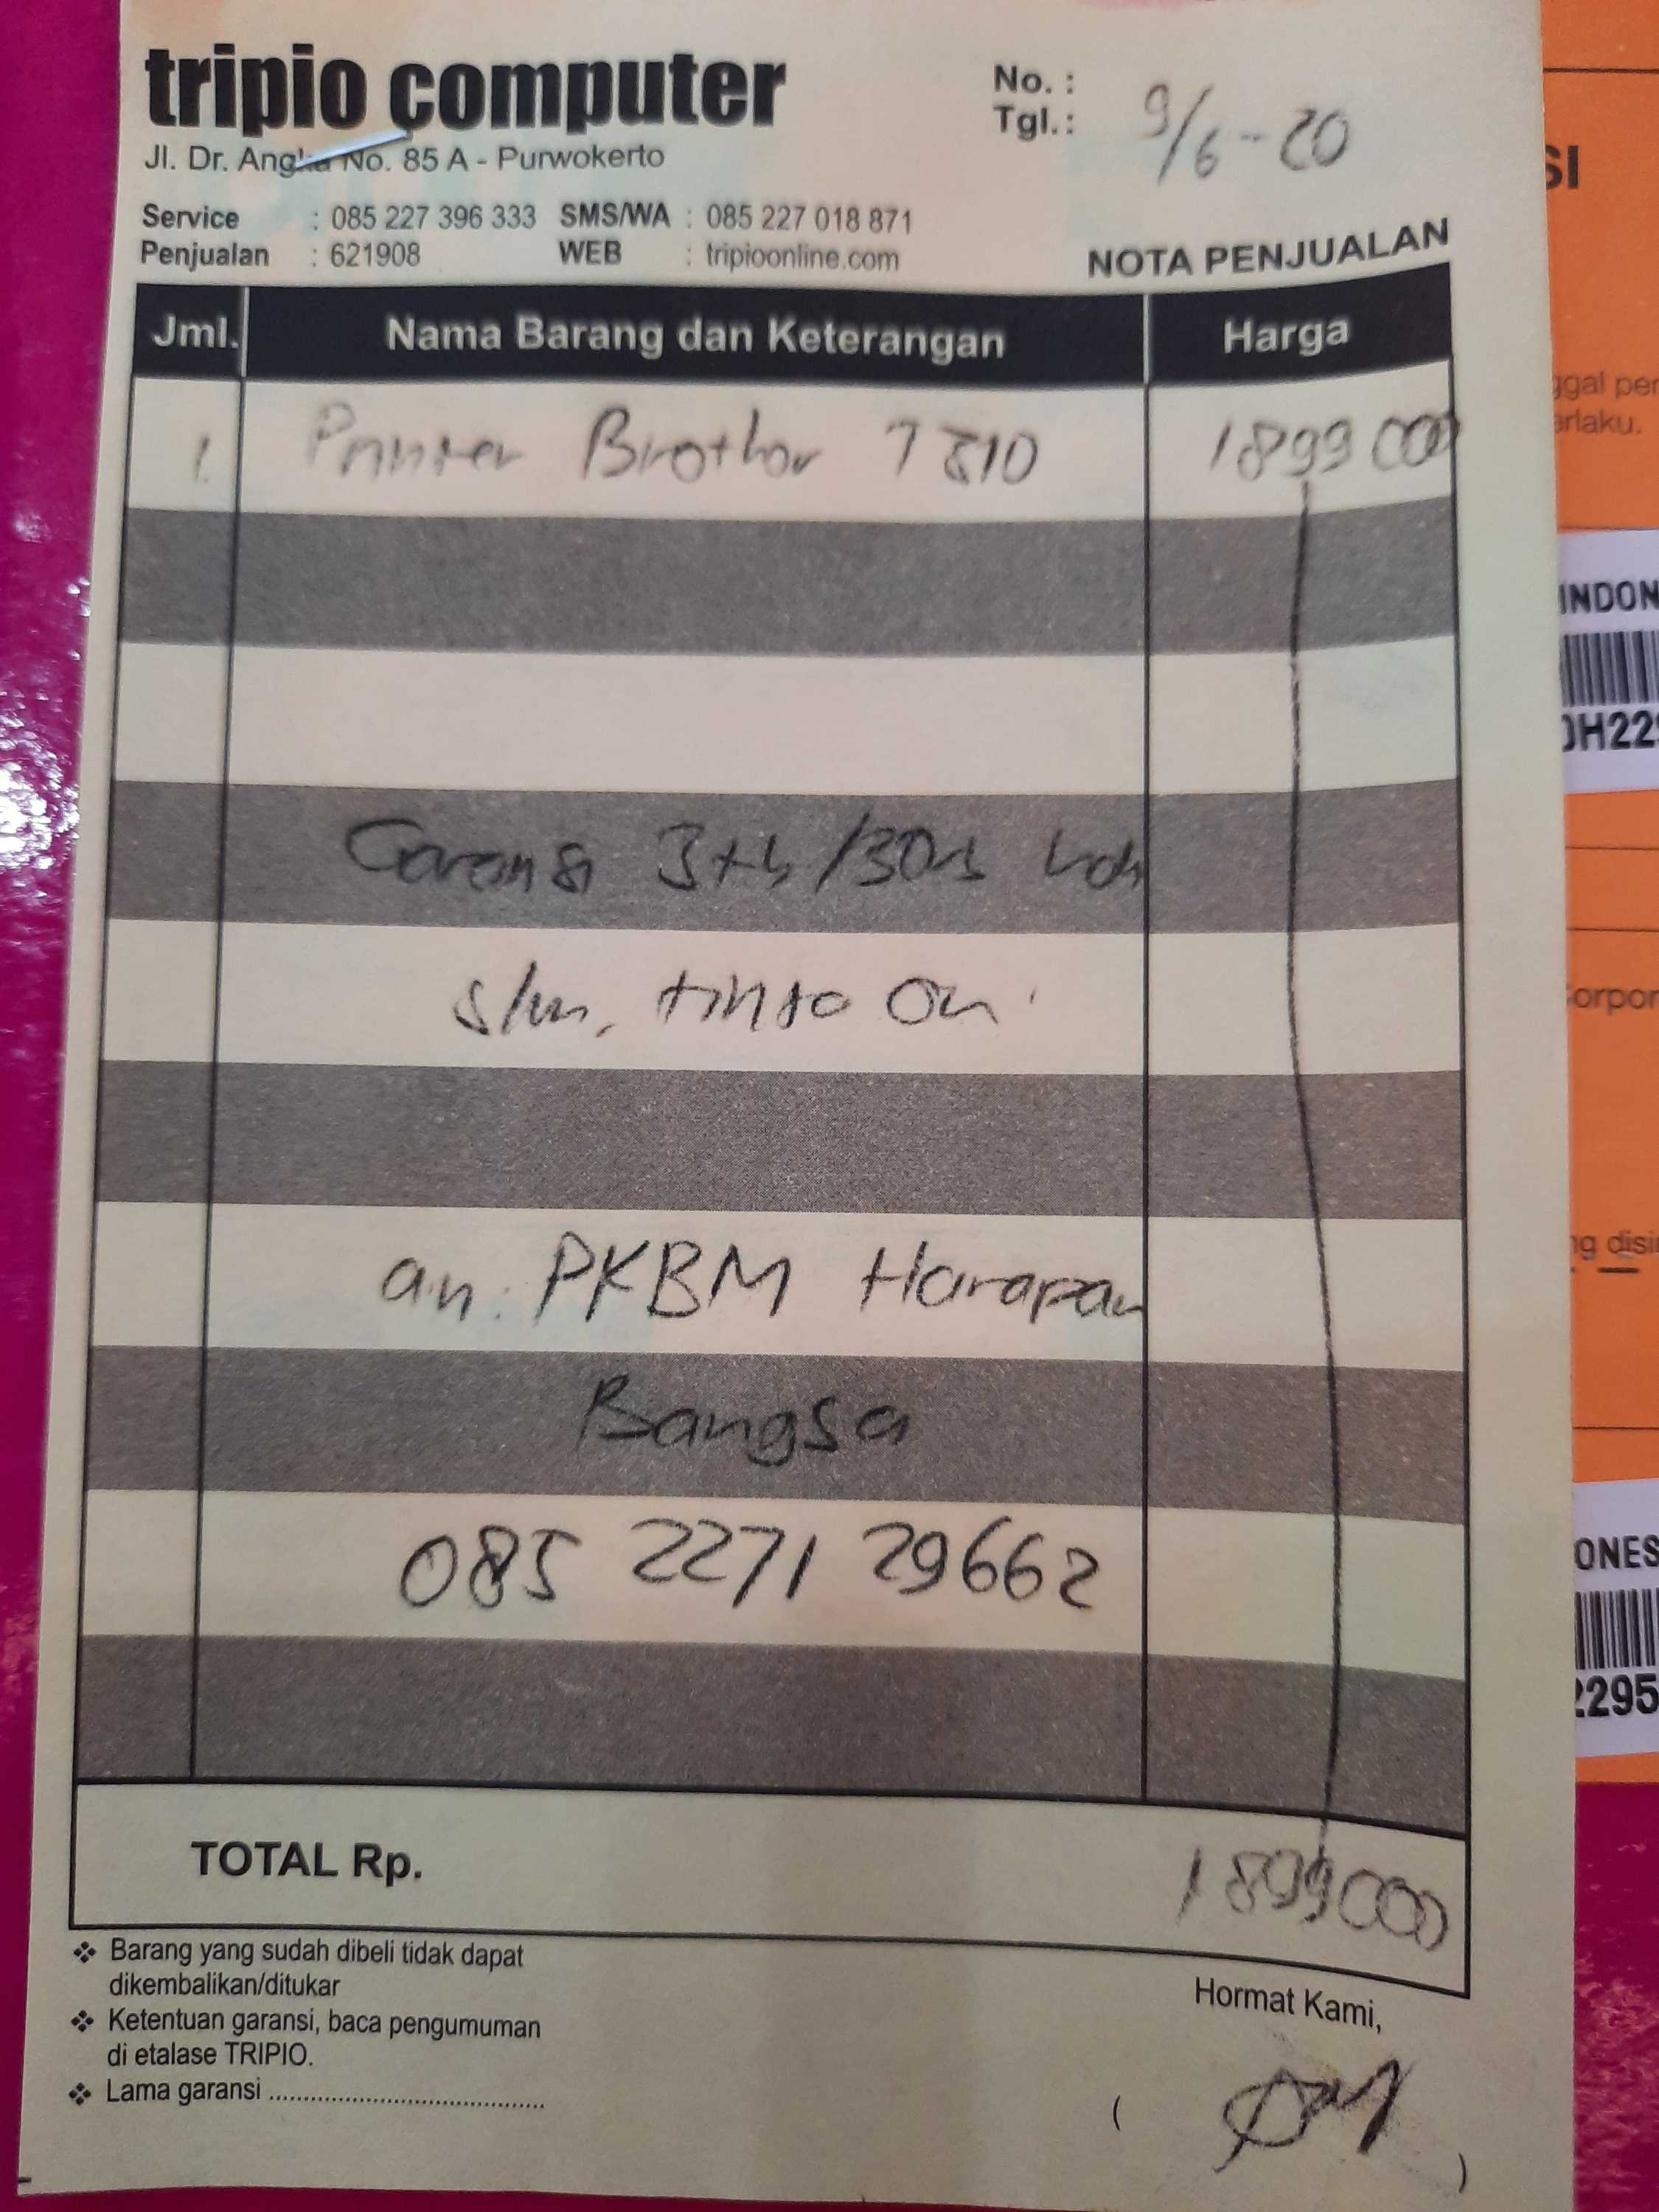 tripio computer
Jl. Dr. Angka No. 85 A - Purwokerto
Service : 085 227 396 333 SMS/WA : 085 227 018 871
Penjualan : 621908 WEB : tripioonline.com
No. :
Tgl.: 9/6-20
NOTA PENJUALAN
Jml. Nama Barang dan Keterangan Harga
1. Printer Brother T310 1899 000
Garansi 3th/30rb
tinta Ori
an. PKBM Harapan
Bangsa
085 2271 29662
TOTAL Rp. 1899000
❖ Barang yang sudah dibeli tidak dapat
dikembalikan/ditukar
❖ Ketentuan garansi, baca pengumuman
di etalase TRIPIO.
❖ Lama garansi ..........................................
Hormat Kami,
( )
SI
ggal per
erlaku.
INDON
0H22
orpor
ng disi
ONES
2295